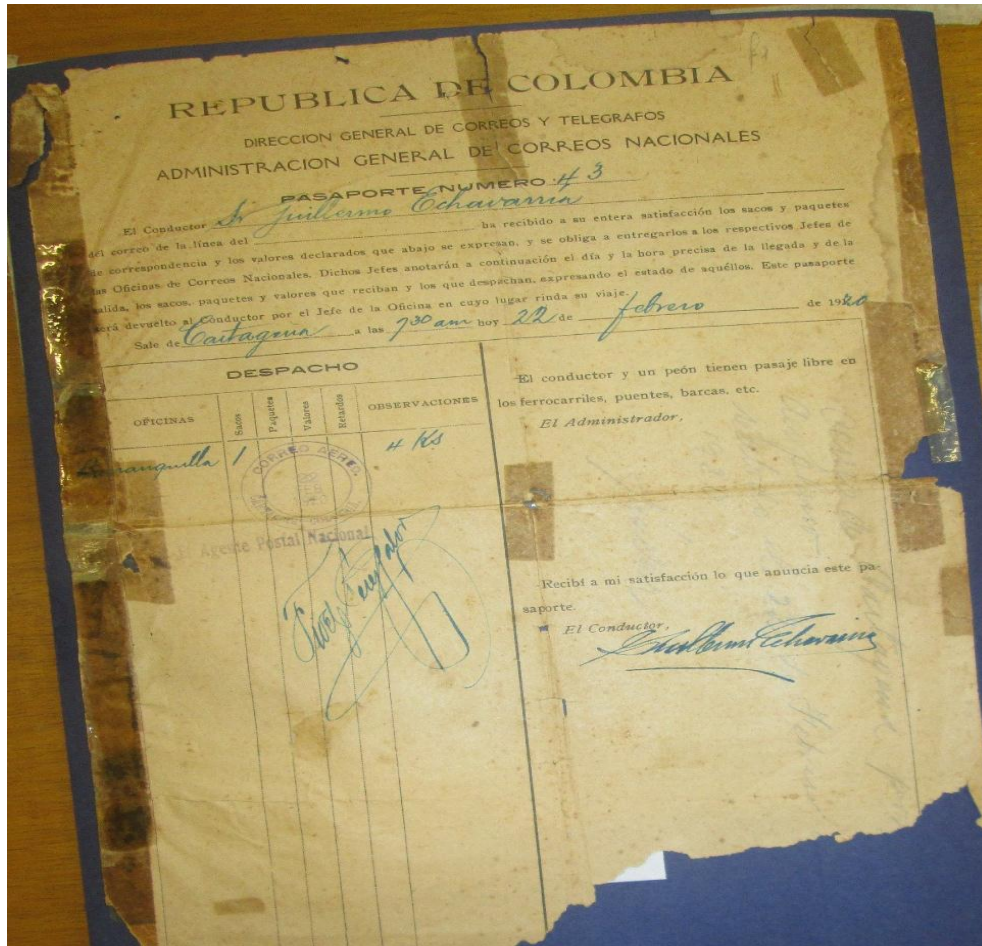 REPUBLICA DE COLOMBIA
DIRECCION GENERAL DE CORREOS Y TELEGRAFOS
ADMINISTRACION GENERAL DE CORREOS NACIONALES
PASAPORTE NUMERO 43
El Conductor Sr Guillermo Echavarria ha recibido a su entera satisfacción los sacos y paquetes
del correo de la línea del
de correspondencia y los valores declarados que abajo se expresan, y se obliga a entregarlos a los respectivos Jefes de
las Oficinas de Correos Nacionales. Dichos Jefes anotarán a continuación el día y la hora precisa de la llegada y de la
salida, los sacos, paquetes y valores que reciban y los que despachan, expresando el estado de aquéllos. Este pasaporte
será devuelto al Conductor por el Jefe de la Oficina en cuyo lugar rinda su viaje.
Sale de Cartagena a las 7 30 am hoy 22 de febrero de 1920
DESPACHO
OFICINAS Sacos Paquetes Valores Retardos OBSERVACIONES
Barranquilla 1 4 Ks
CORREO AEREO
Agente Postal Nacional
-El conductor y un peón tienen pasaje libre en
los ferrocarriles, puentes, barcas, etc.
El Administrador,
-Recibí a mi satisfacción lo que anuncia este pa-
saporte.
El Conductor,
Guillermo Echavarria